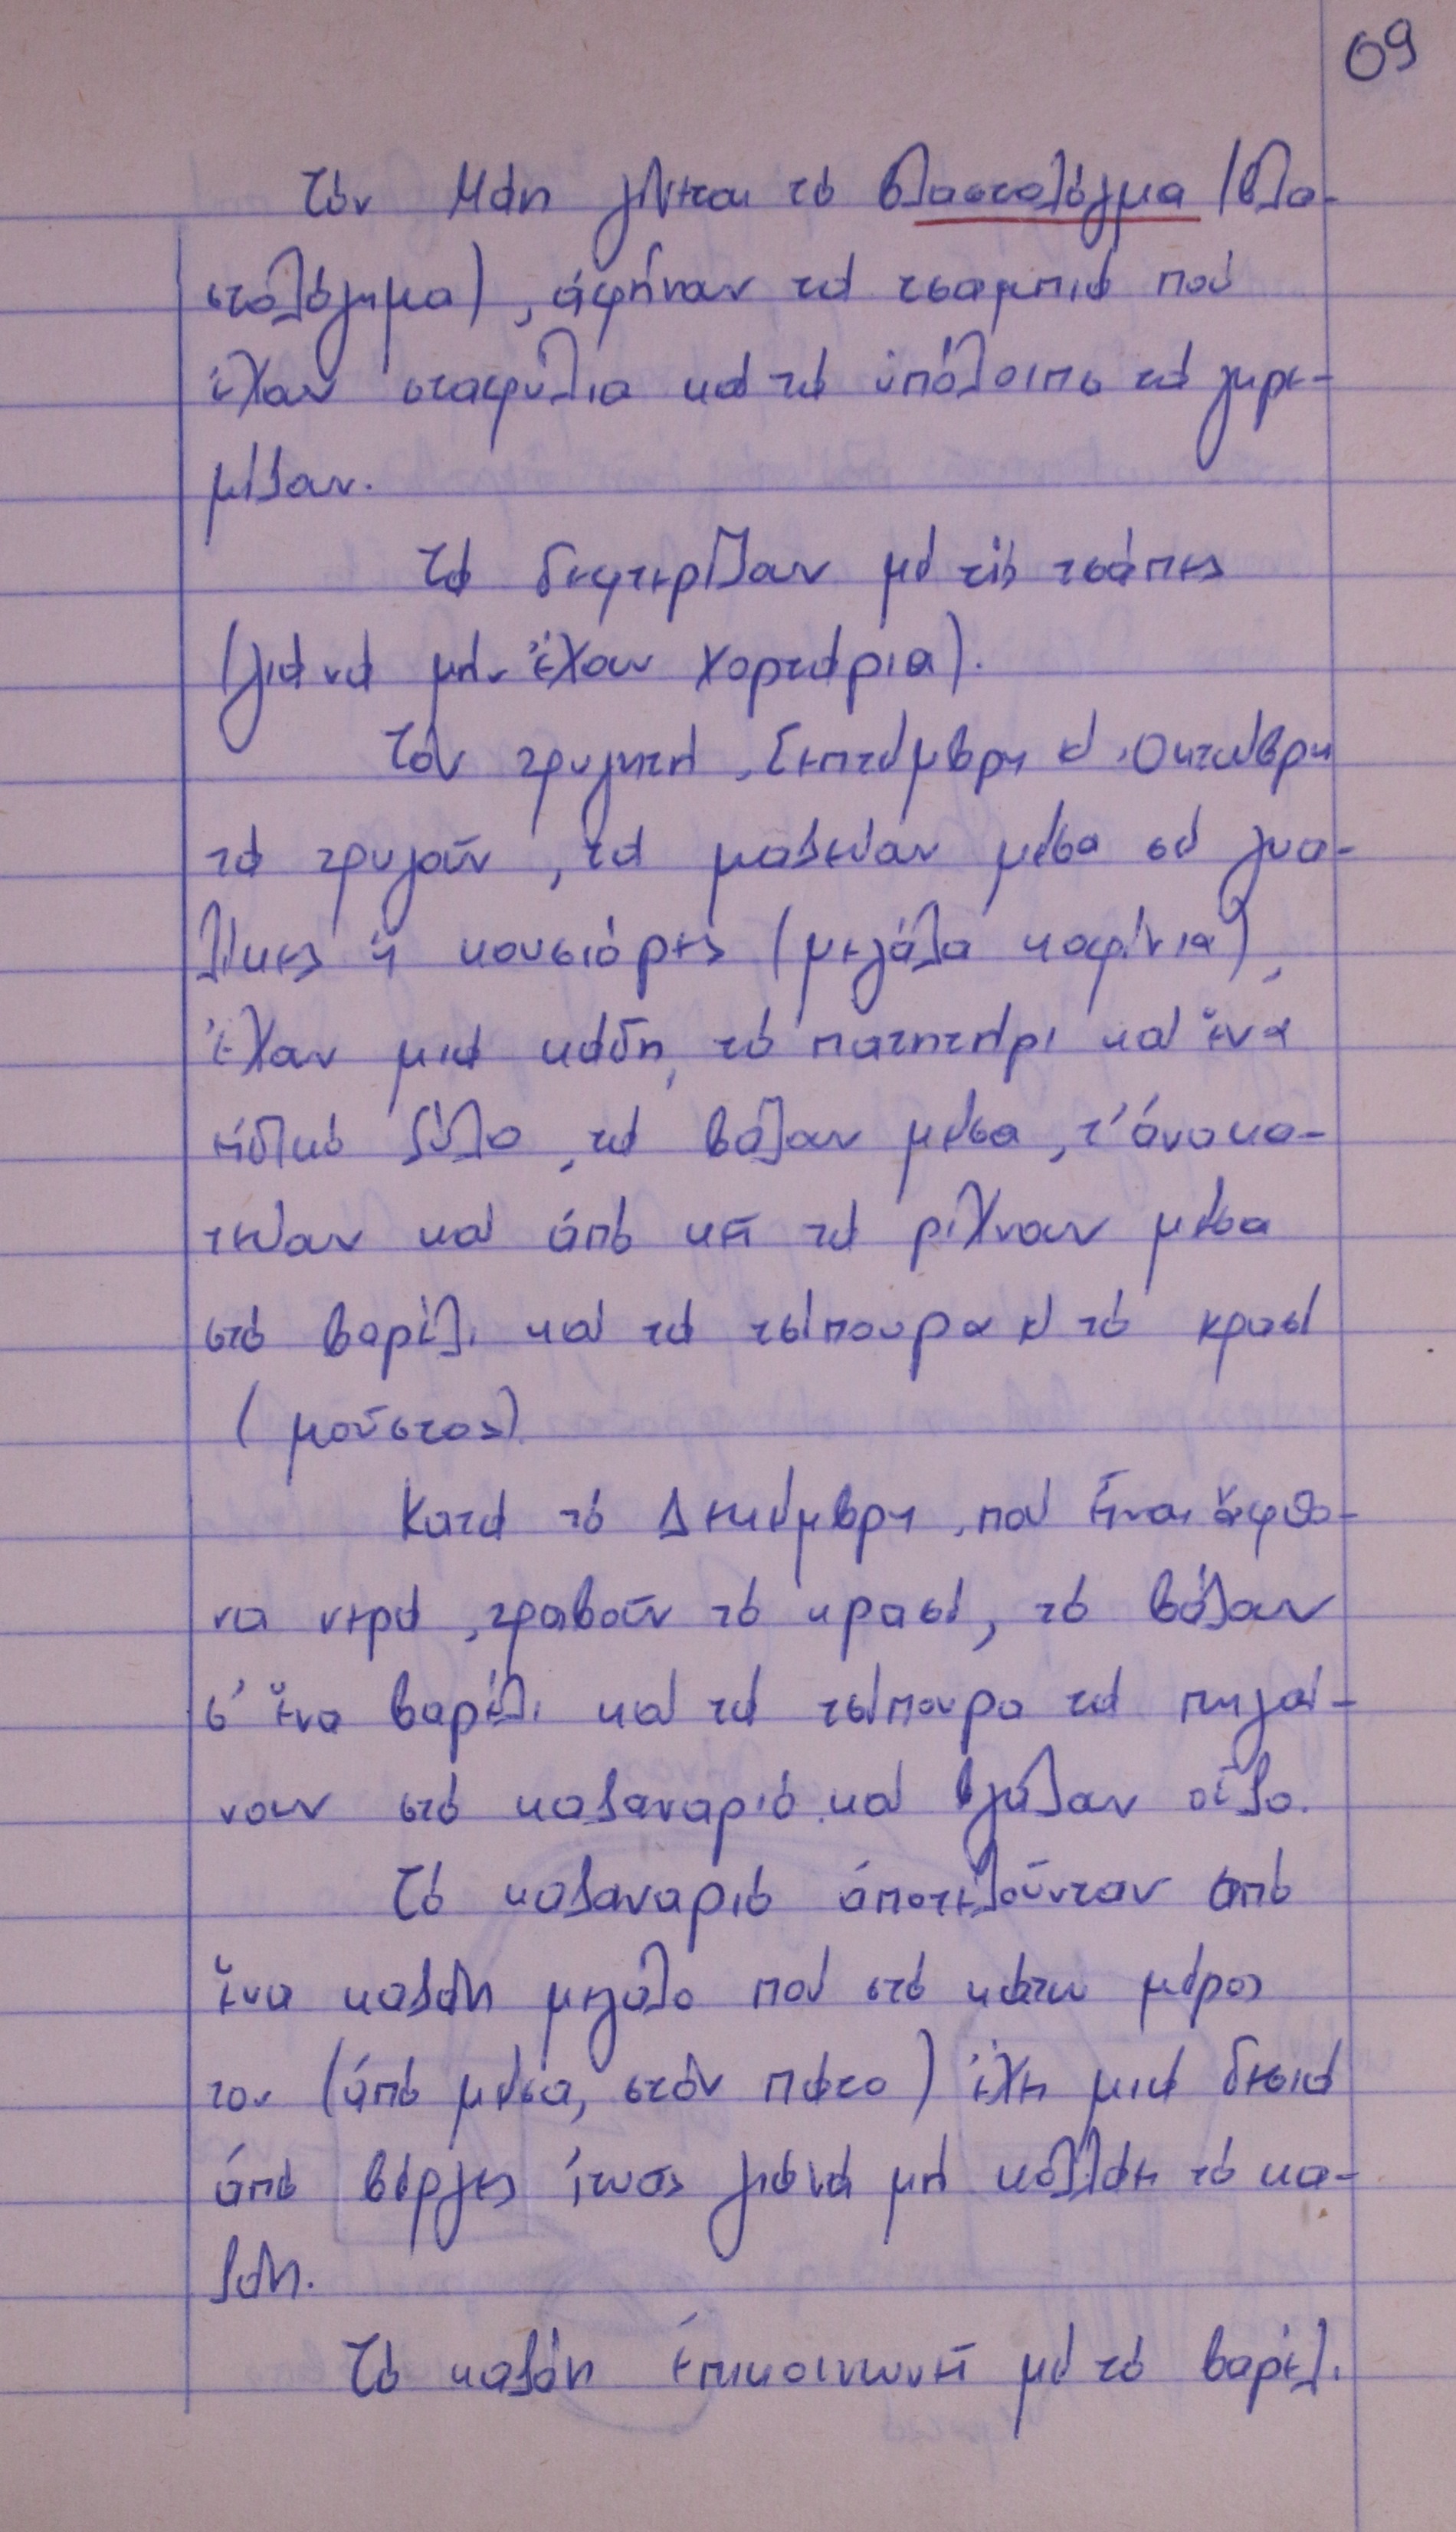 69
Τόν Μάη γίνεται τό βλαστολόγμα (βλα-
στολόγημα), ἀφήναν τά τσαμπιά πού
εἶχαν σταφύλια καί τά ὑπόλοιπα τά γκρε-
μίζαν.
Τά δεφτερίζαν μέ τίς τσάπες
(γιά νά μήν ἔχουν χορτάρια).
Τόν τρυγητή, Σεπτέμβρη κ' Ὀκτώβρη
τά τρυγοῦν, τά μαζεύαν μέσα σέ γυα-
λίκες ἤ κουσιόρες (μεγάλα κοφίνια),
ἔχαν μιά κάδη, τό πατητήρι καί ἕνα
εἰδικό ξύλο, τά βάζαν μέσα, τ' ἀνακα-
τεύαν καί ἀπό κεῖ τά ρίχναν μέσα
στό βαρέλι καί τά τσίπουρα κ τό κρασί
(μοῦστος).
Κατά τό Δεκέμβρη, πού εἶναι ἄφθο-
να νερά, τραβοῦν τό κρασί, τό βάζαν
σ' ἕνα βαρέλι καί τά τσίπουρα τά πηγαί-
νουν στό καζαναριό καί βγάζαν οὖζο.
Τό καζαναριό ἀποτελοῦνταν ἀπό
ἕνα καζάνι μεγάλο πού στό κάτω μέρος
του (ἀπό μέσα, στόν πάτο) ἔχει μιά δεσιά
ἀπό βέργες ἴτσος γιά νά μή κολλάει τό κα-
ζάνι.
Τό καζάνι ἐπικοινωνεῖ μέ τό βαρέλι